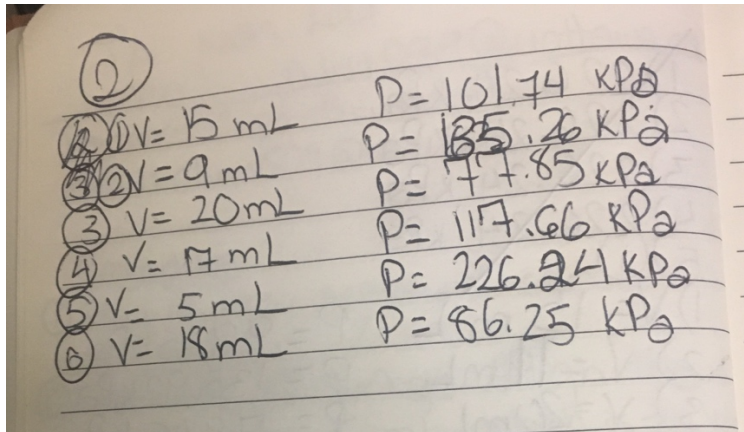 2
① V= 15 mL P= 101.74 KPa
② V= 9 mL P= 185.26 KPa
③ V= 20 mL P= 77.85 KPa
④ V= 17 mL P= 117.66 KPa
⑤ V= 5 mL P= 226.24 KPa
⑥ V= 18 mL P= 86.25 KPa